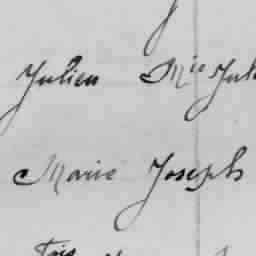 Julien Mie Jul
Marie Joseph